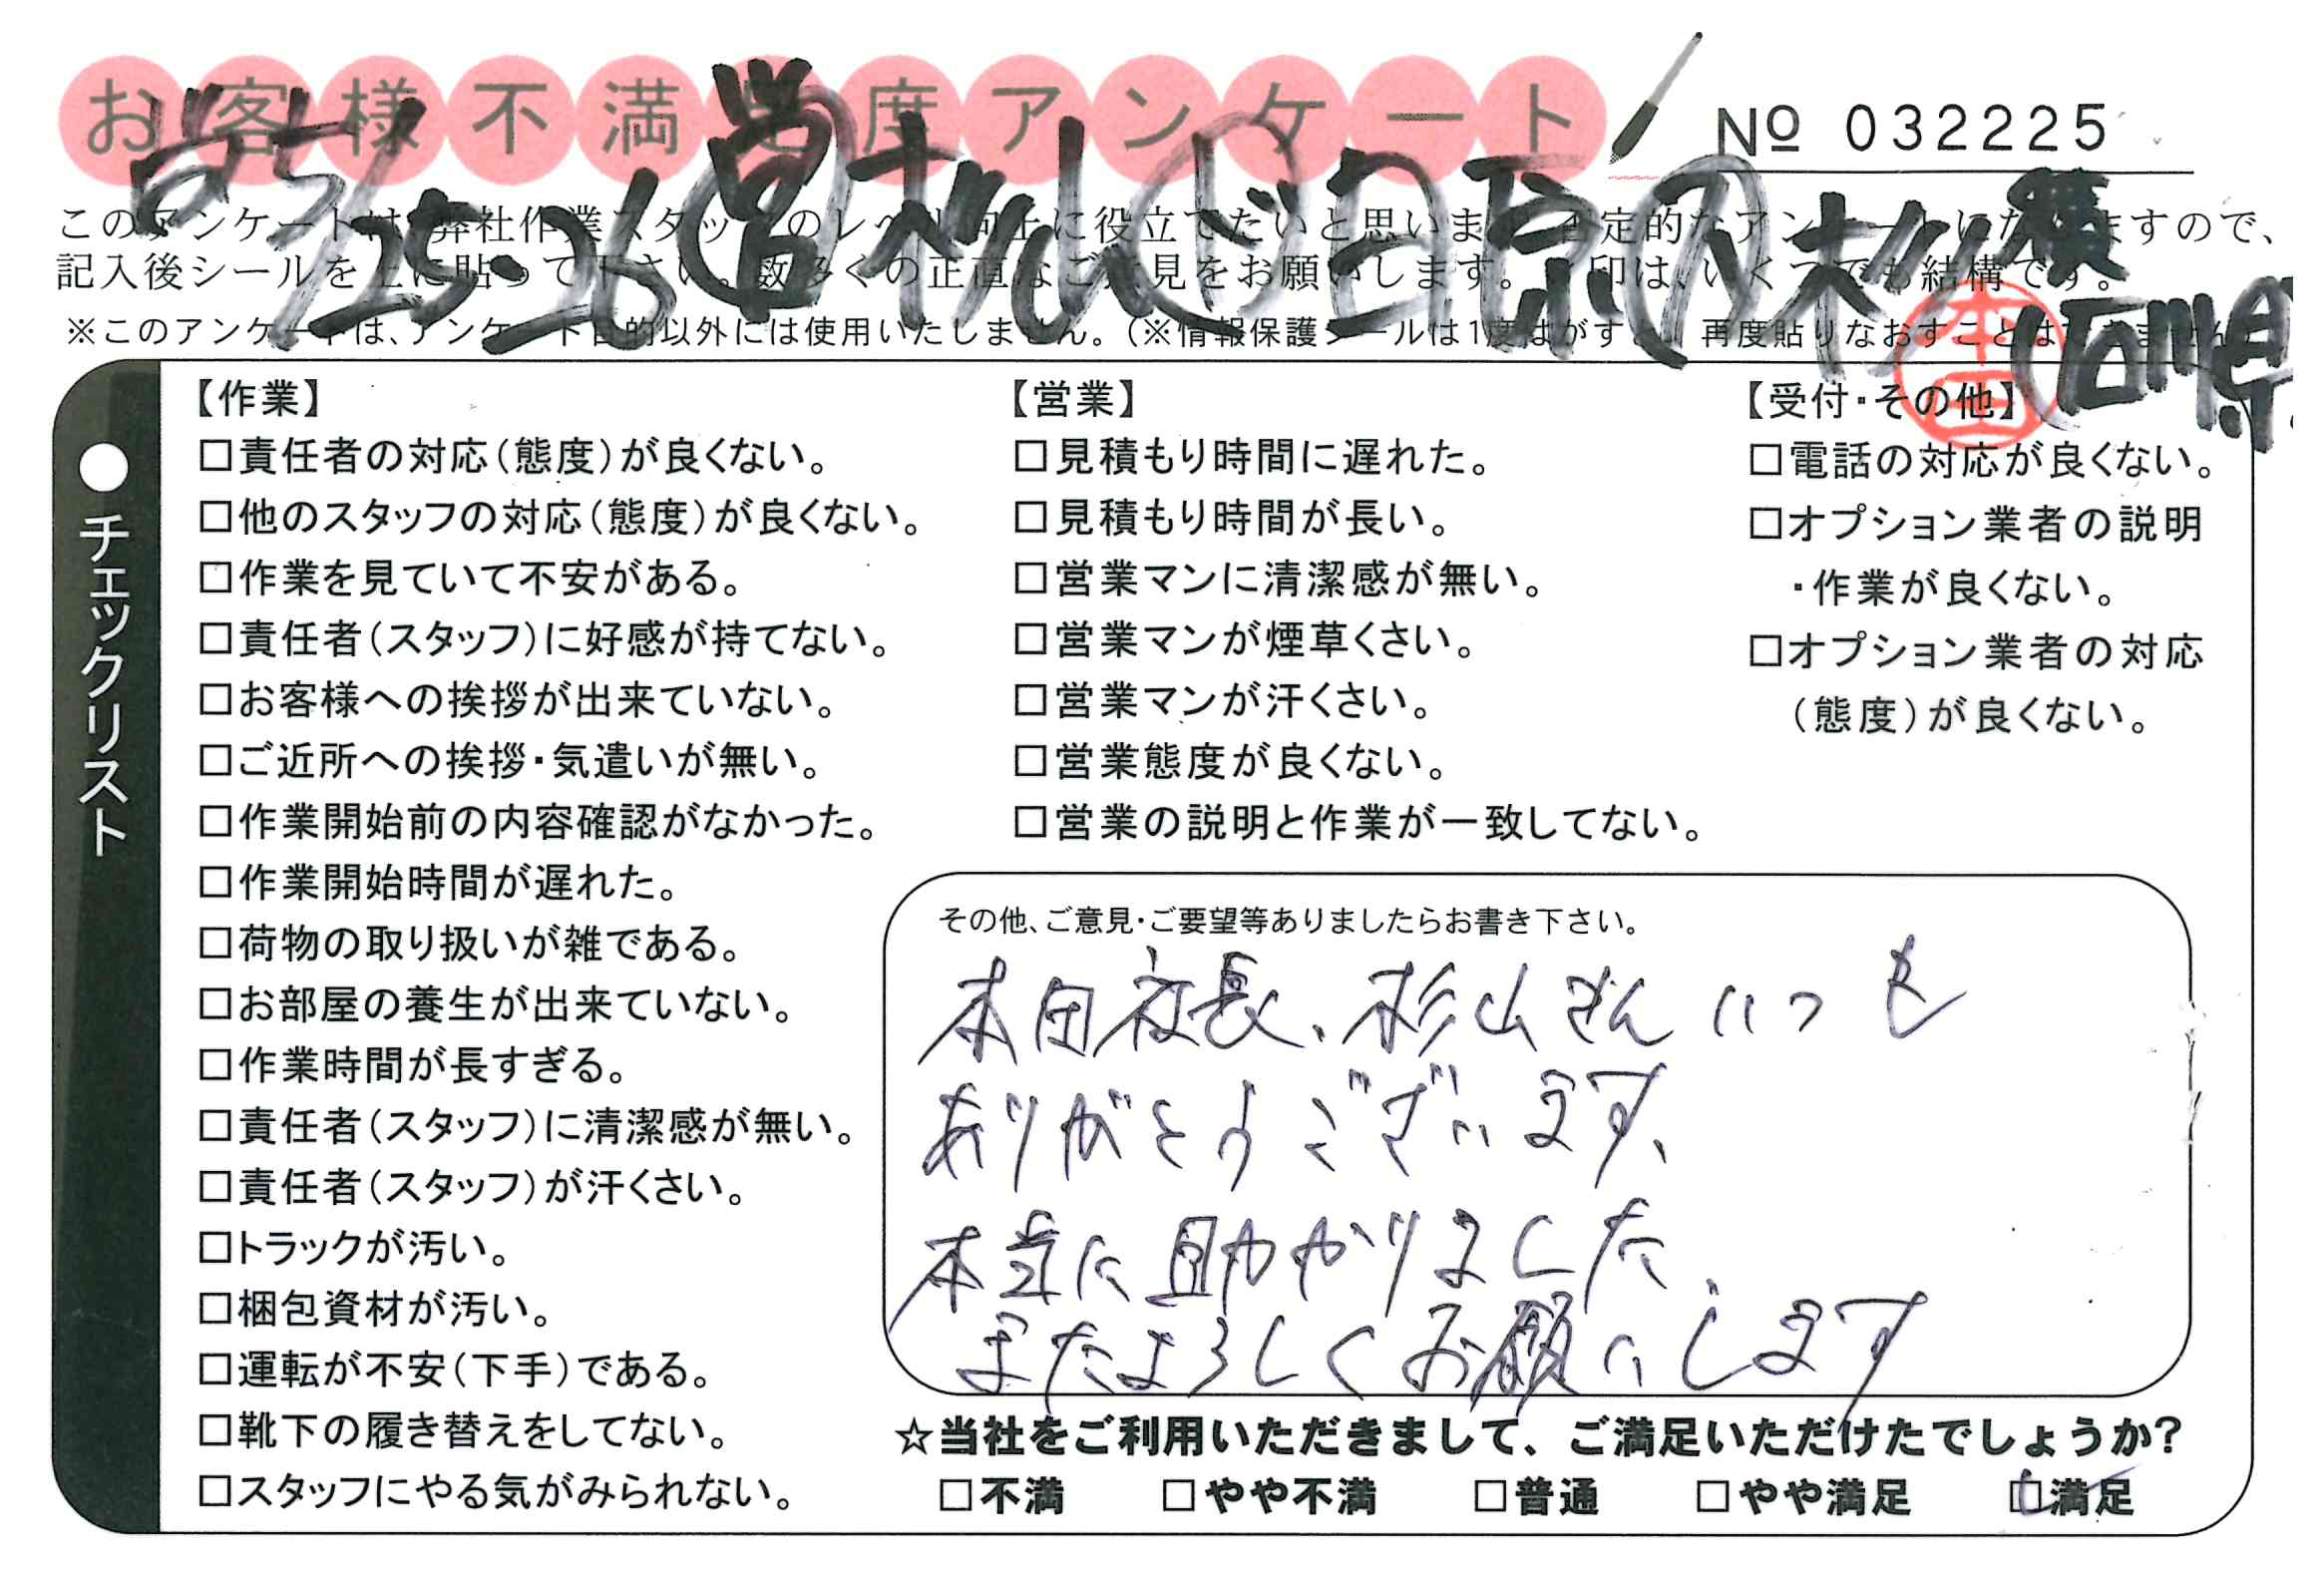 お客様不満足度アンケート
№ 032225
5/25・26 営
このアンケートは、弊社作業スタッフのレベル向上に役立てたいと思います。否定的なアンケートになりますので、
記入後シールを上に貼って下さい。数多くの正直なご意見をお願いします。 印は、いくつでも結構です。
※このアンケートは、アンケート目的以外には使用いたしません。(※情報保護シールは1度はがすと、再度貼りなおすことはできません
本田
●チェックリスト
【作業】
□責任者の対応(態度)が良くない。
□他のスタッフの対応(態度)が良くない。
□作業を見ていて不安がある。
□責任者(スタッフ)に好感が持てない。
□お客様への挨拶が出来ていない。
□ご近所への挨拶・気遣いが無い。
□作業開始前の内容確認がなかった。
□作業開始時間が遅れた。
□荷物の取り扱いが雑である。
□お部屋の養生が出来ていない。
□作業時間が長すぎる。
□責任者(スタッフ)に清潔感が無い。
□責任者(スタッフ)が汗くさい。
□トラックが汚い。
□梱包資材が汚い。
□運転が不安(下手)である。
□靴下の履き替えをしてない。
□スタッフにやる気がみられない。
【営業】
□見積もり時間に遅れた。
□見積もり時間が長い。
□営業マンに清潔感が無い。
□営業マンが煙草くさい。
□営業マンが汗くさい。
□営業態度が良くない。
□営業の説明と作業が一致してない。
【受付・その他】
□電話の対応が良くない。
□オプション業者の説明
・作業が良くない。
□オプション業者の対応
(態度)が良くない。
その他、ご意見・ご要望等ありましたらお書き下さい。
本田社長、杉山さんいつも
ありがとうございます、
本当に助かりました、
またよろしくお願いします
☆当社をご利用いただきまして、ご満足いただけたでしょうか?
□不満 □やや不満 □普通 □やや満足 □満足